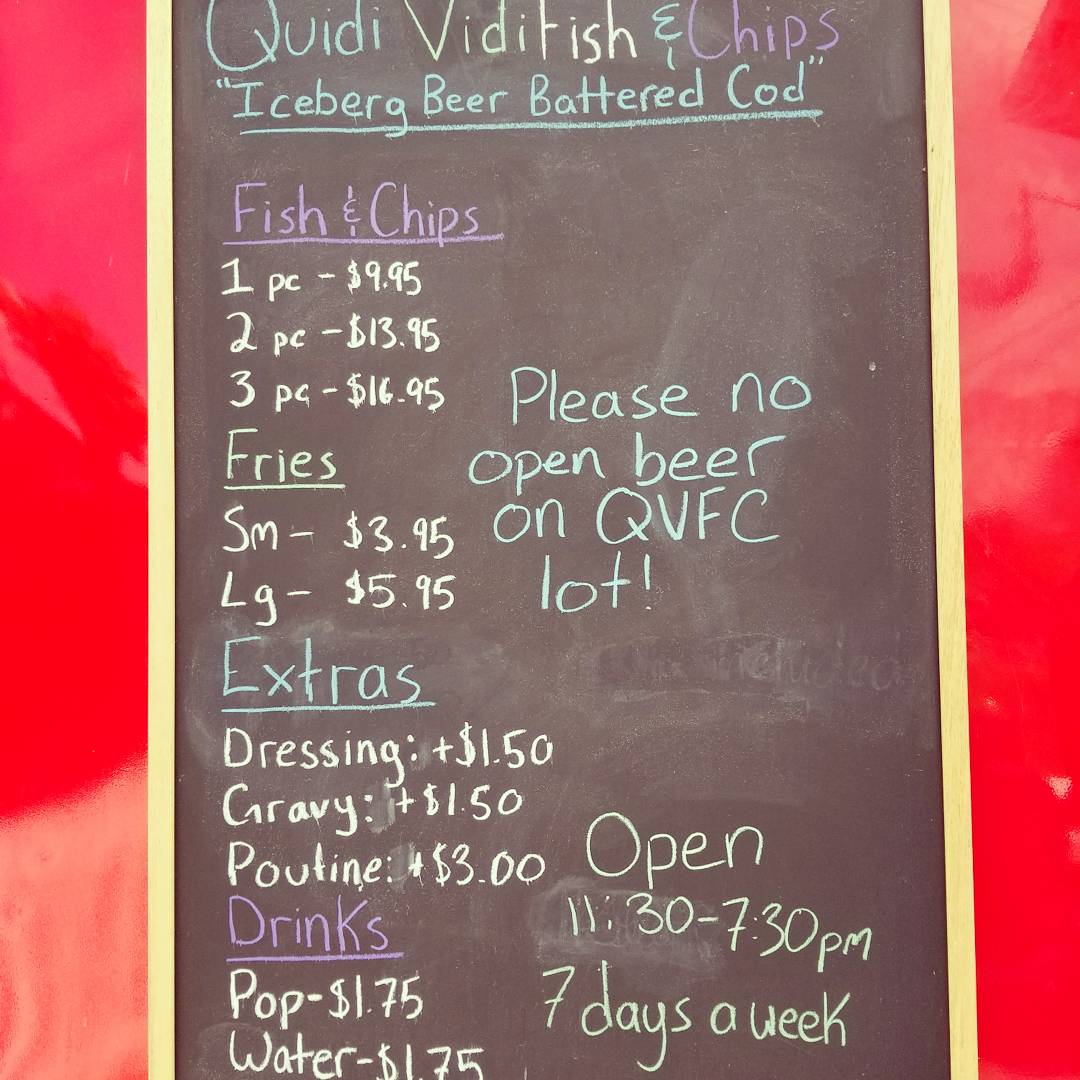 Quidi Vidi Fish & Chips
"Iceberg Beer Battered Cod"
Fish & Chips
1 pc - $9.95
2 pc - $13.95
3 pc - $16.95
Please no
open beer
on QVFC
lot!
Fries
Sm - $3.95
Lg - $5.95
Extras
Dressing: +$1.50
Gravy: +$1.50
Poutine: +$3.00
Open
11:30-7:30pm
7 days a week
Drinks
Pop-$1.75
Water-$1.75